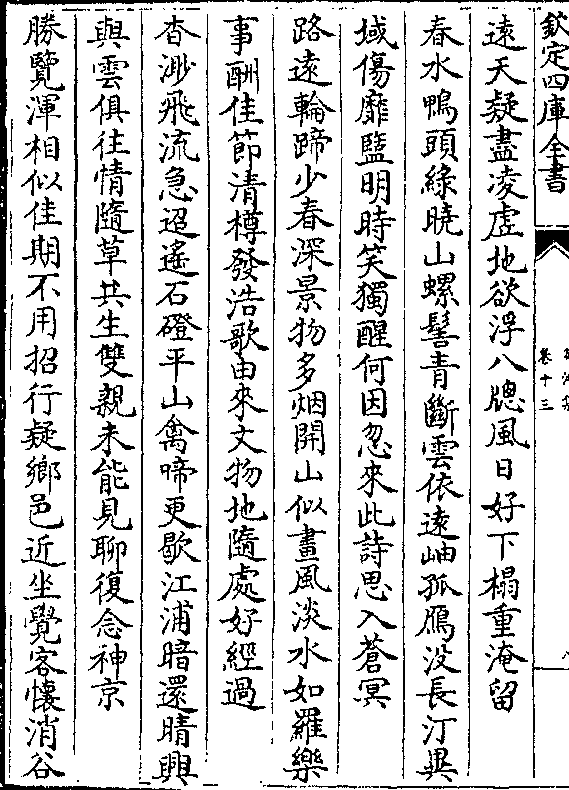 欽定四庫全書
卷十三
遠天疑盡凌虛地欲浮八牕風日好下榻重淹留
春水鴨頭綠曉山螺髻青斷雲依遠岫孤鴈没長汀異
域傷靡盬明時笑獨醒何因忽來此詩思入蒼冥
路遠輪蹄少春深景物多烟開山似畫風淡水如羅樂
事酬佳節清樽發浩歌由來文物地隨處好經過
杳渺飛流急迢遙石磴平山禽啼更歇江浦暗還晴興
與雲俱往情隨草共生雙親未能見聊復念神京
勝覽渾相似佳期不用招行疑鄉邑近坐覺客懷消谷